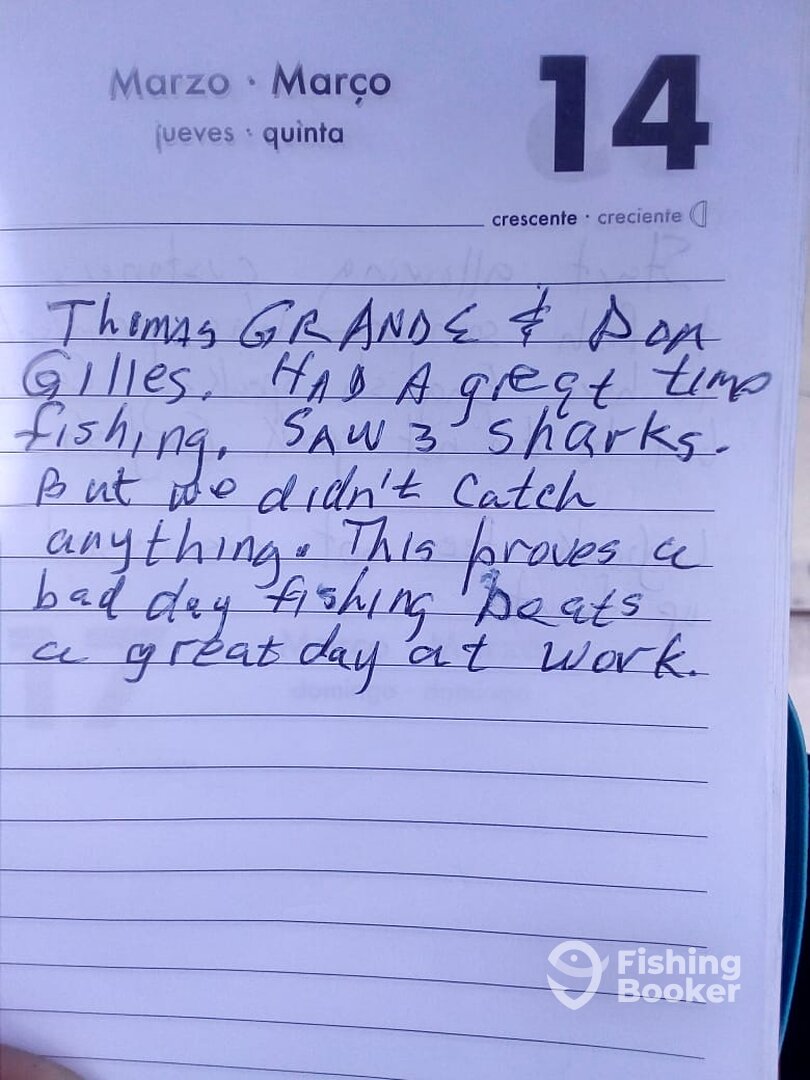 Marzo · Março
jueves · quinta
14
crescente · creciente
Thomas GRANDE & Don
Gilles. HAD A great time
fishing. SAW 3 sharks.
But we didn't catch
anything. This proves a
bad day fishing beats
a great day at work.
Fishing
Booker